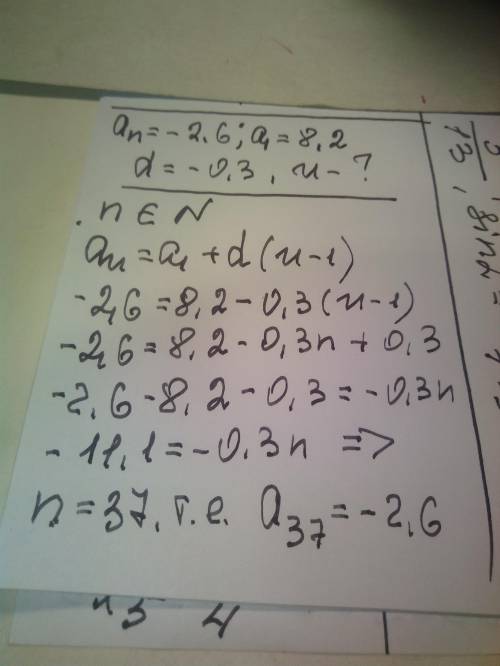 aₙ = -2,6; a₁ = 8,2
d = -0,3, n - ?
n ∈ N
aₙ = a₁ + d(n-1)
-2,6 = 8,2 - 0,3(n-1)
-2,6 = 8,2 - 0,3n + 0,3
-2,6 - 8,2 - 0,3 = -0,3n
-11,1 = -0,3n =>
n = 37, т.е. a₃₇ = -2,6
13,